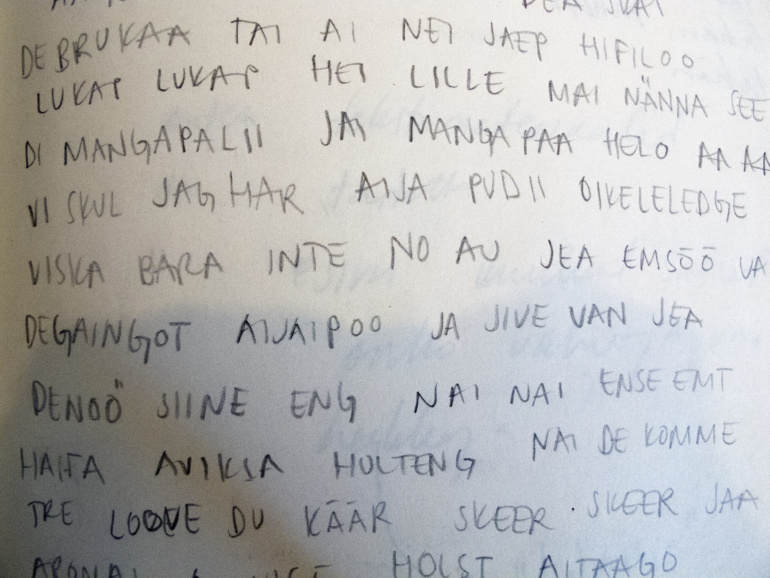 DEA JKAI
DE BRUKAA TAI AI NEI JAEP HIFILOO
LUKAP LUKAP HEI LILLE MAI NÄNNA SEE
DI MANGAPALII JAI MANGA PAA HELO AA AA
VI SKUL JAG HAR AIJA PUDII OIKELELEDGE
VISKA BARA INTE NO AU JEA EMSÖÖ VA
DEGAINGOT AIJAIPOO JA JIVE VAN JEA
DENOÖ SIINE ENG NAI NAI ENSE EMT
HAIFA AVIKSA HOLTENG NAI DE KOMME
TRE LOOVE DU KÄÄR SKEER SKEER JAA
HOLST AITAAGO